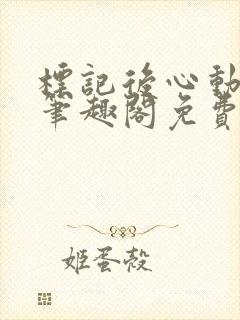 標記後心動
筆趣閣免費
姬蛋殼